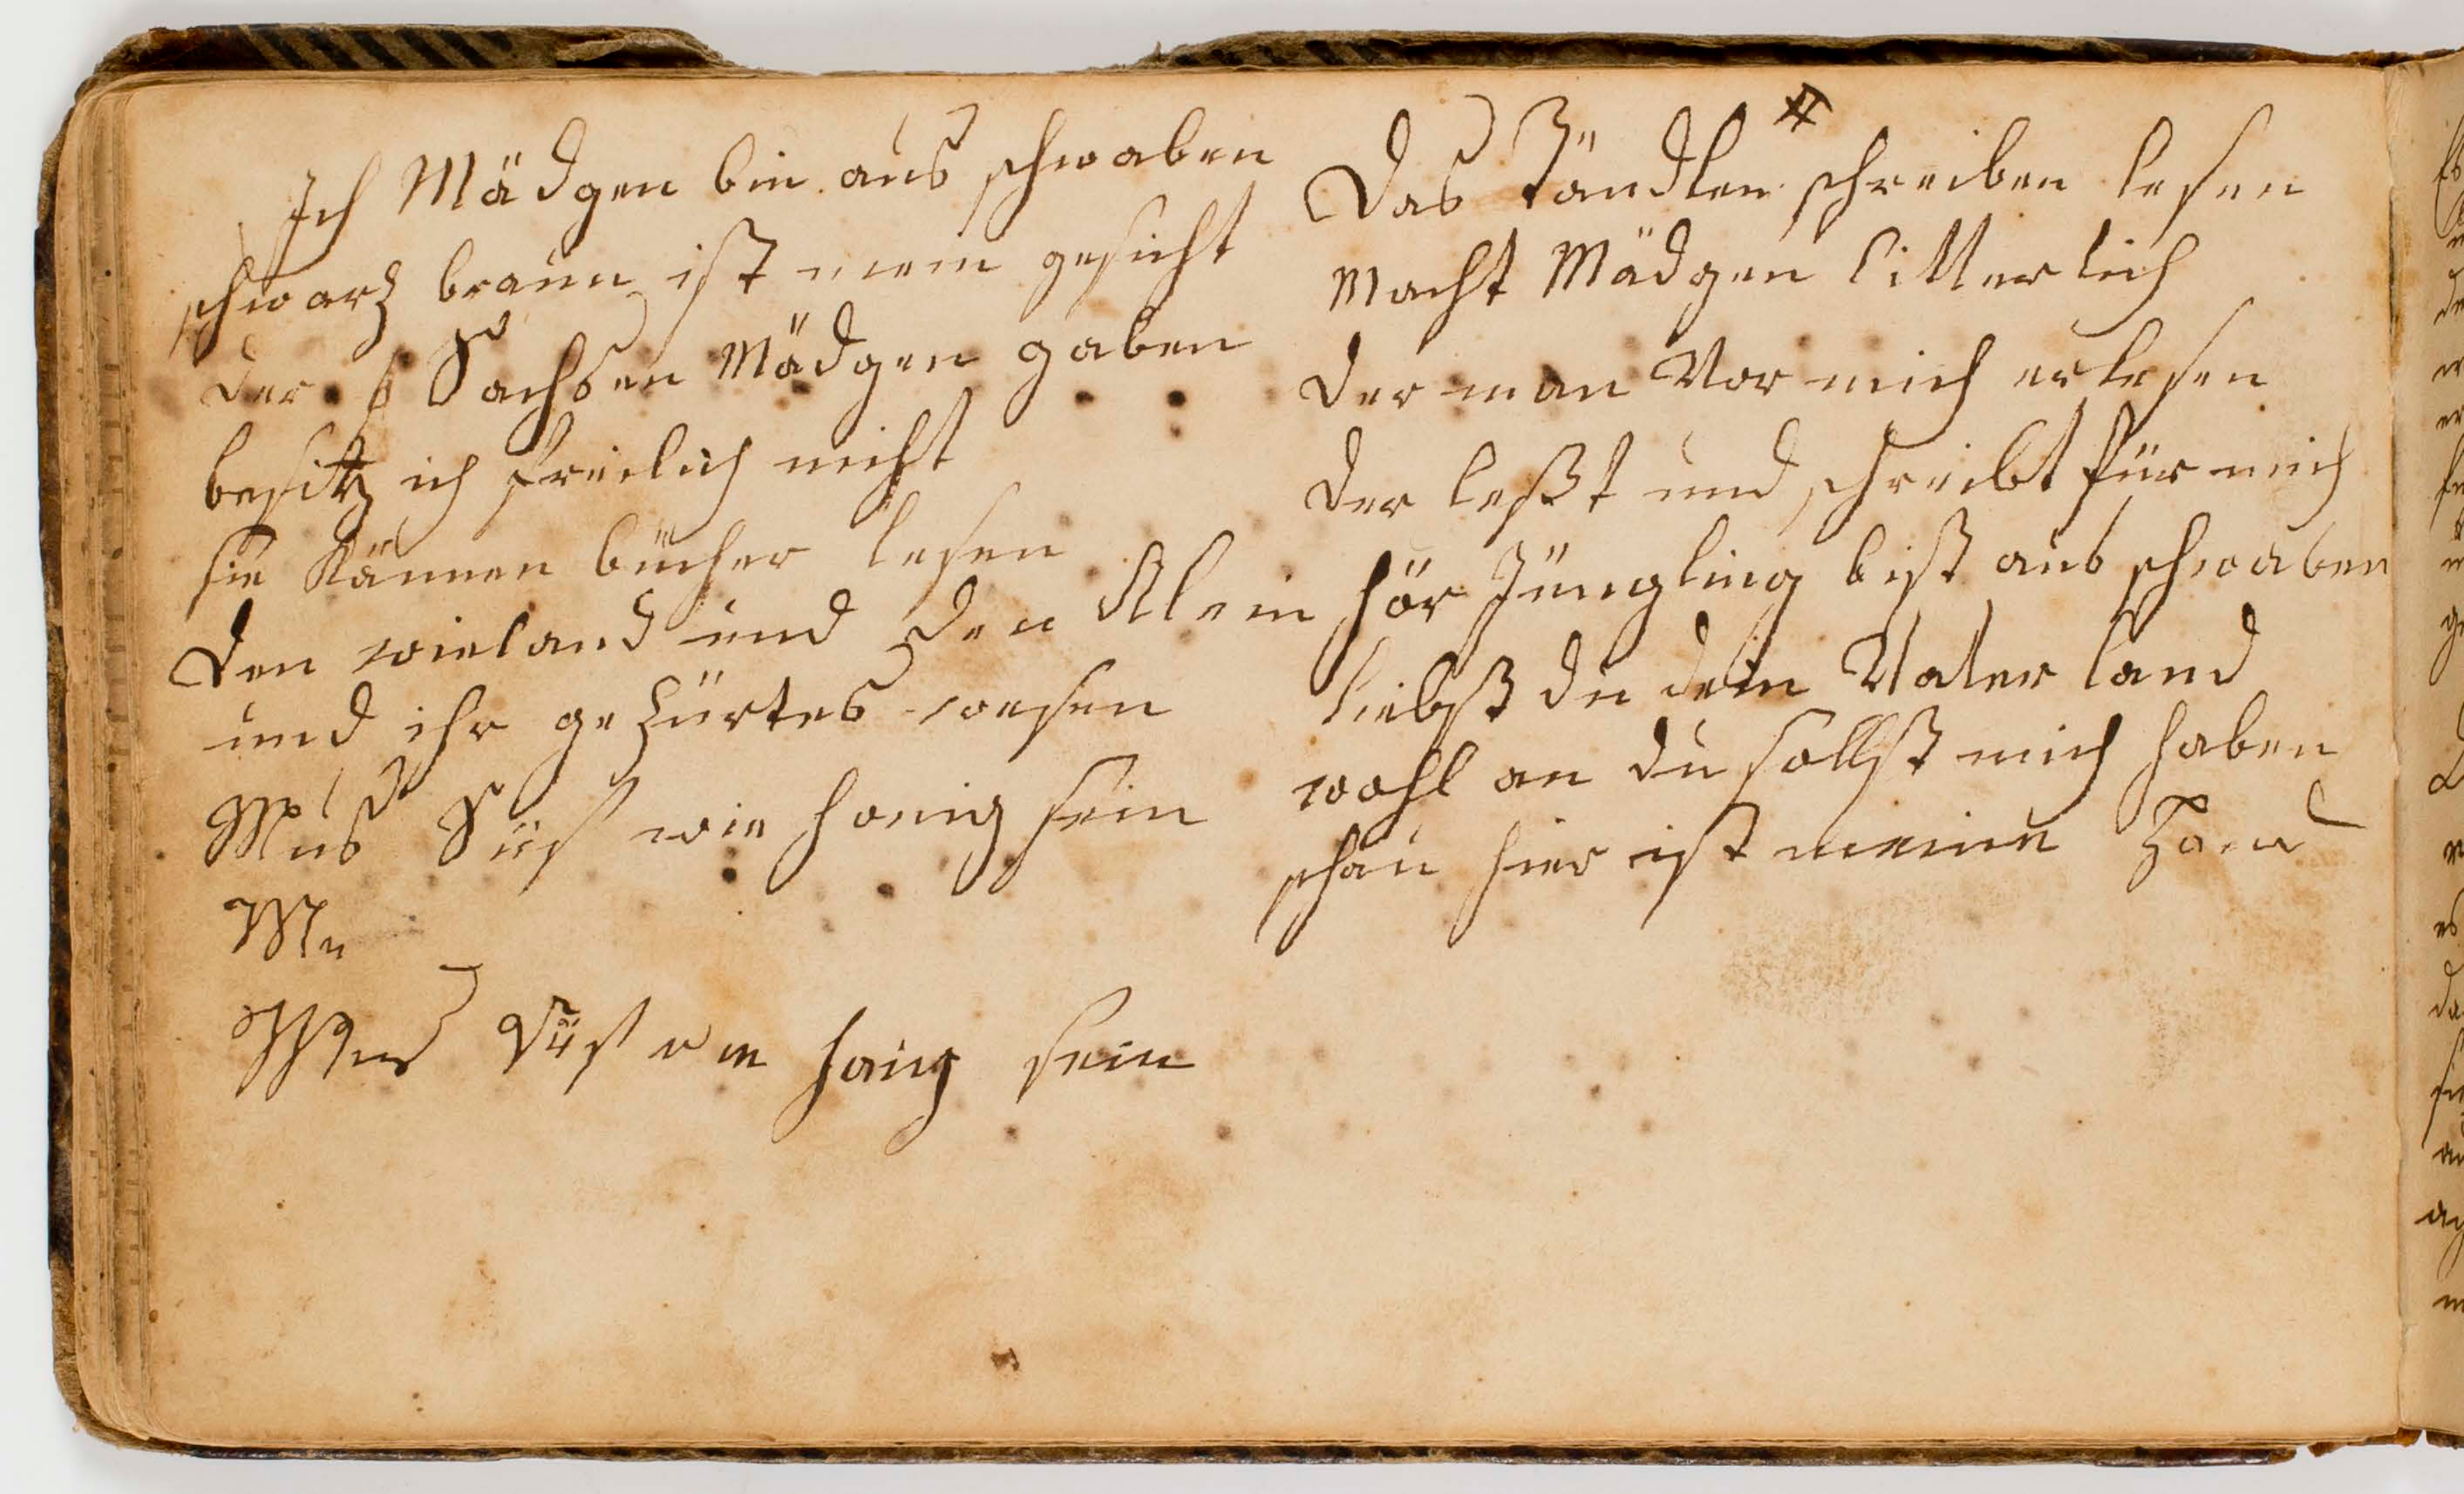 Ich Mädgen bin aus schwaben
schwarz braun ist mein gesicht
der Sachsen Mädgen gaben
besitz ich freilich nicht
sie Kännen bücher lesen
den wieland und den Klein
und ihr gezürtes wesen
Mus Süß wie honig sein
Mu
Mus Süß wie honig sein
Das Tändlen schreiben lesen
Macht Mädgen litterlich
der man Vor mich erlesen
der leßt und schreibt für mich
hör Jüngling bist aus schwaben
liebst du dein Vater land
wohl an du sollst mich haben
schau hier ist meine Hand